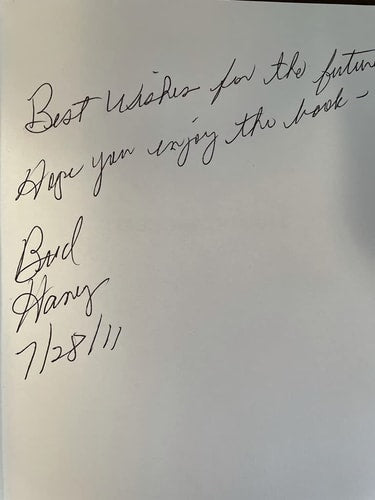 Best Wishes for the future
Hope you enjoy the book -
Bud
Haney
7/28/11